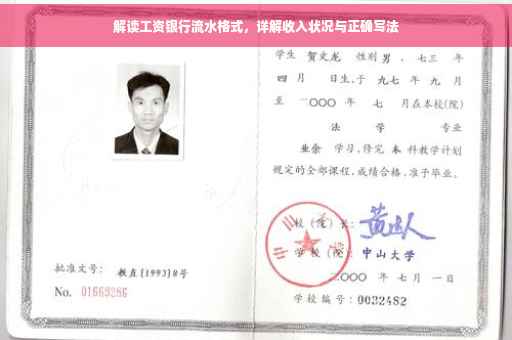 解读工资银行流水格式，详解收入状况与正确写法
学生 贺文龙 性别 男 ，七三 年
四 月 日生，于 九七 年 九 月
至 二〇〇〇 年 七 月在本校(院)
法 学 专业
业余 学习，修完 本 科教学计划
规定的全部课程，成绩合格，准予毕业。
校 (院) 长：
学 校 (院)： 中山大学
二〇〇〇 年 七 月 一 日
学校编号：0032482
批准文号： 教直[1993]8号
No. 01669286